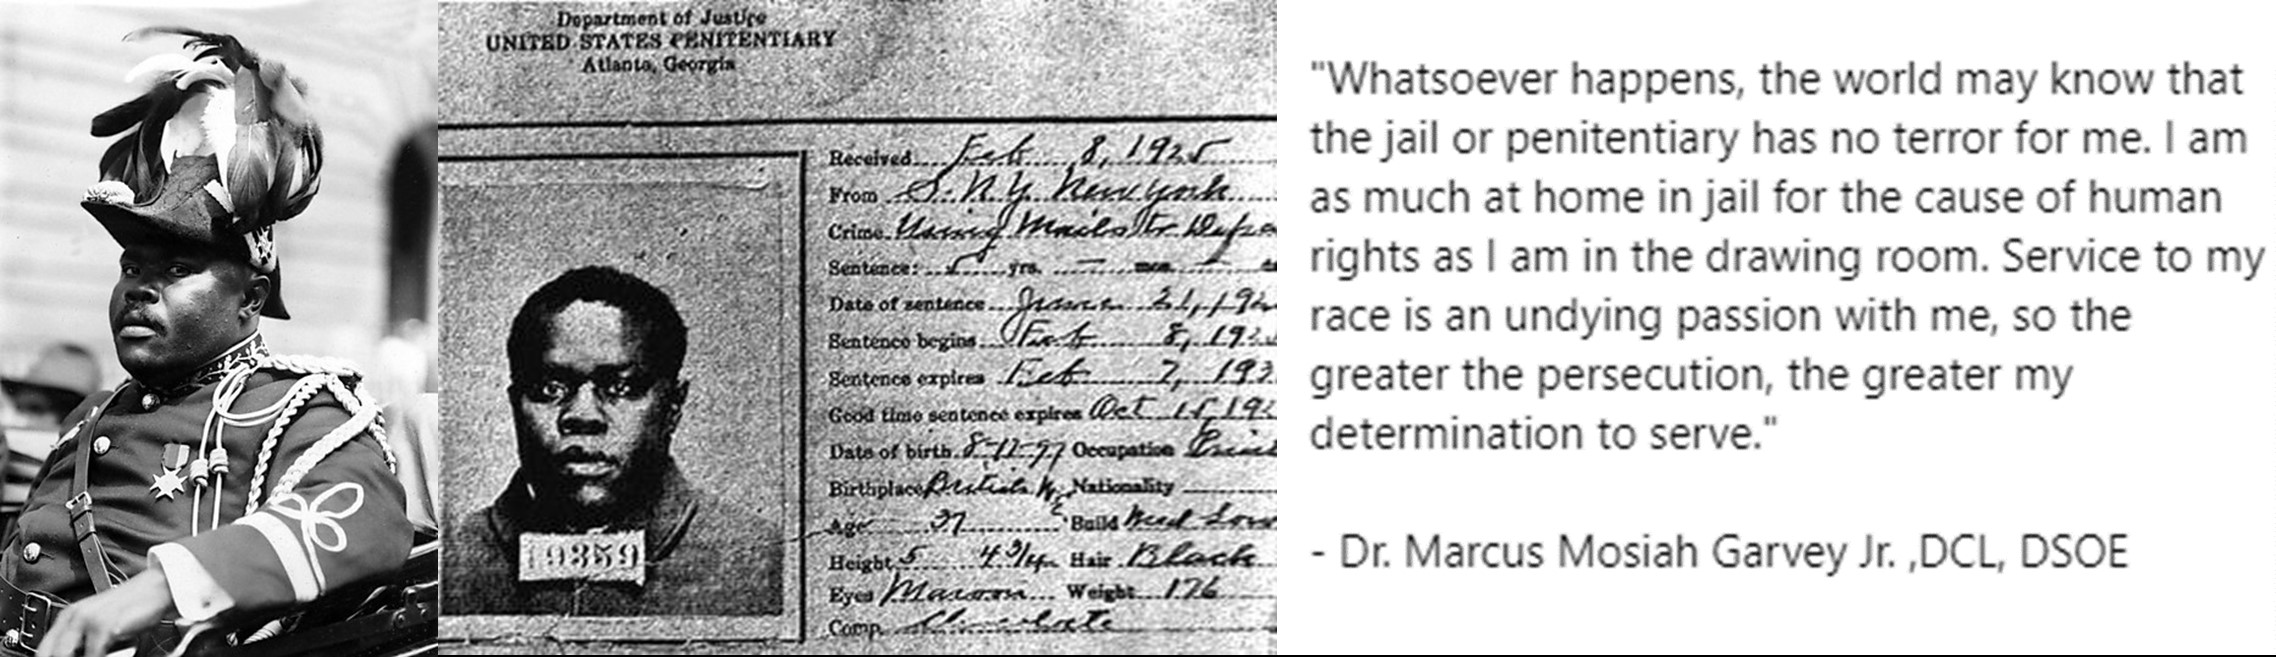 Department of Justice
UNITED STATES PENITENTIARY
Atlanta, Georgia
Received Feb 8, 1925
From S. N.Y. New York
Crime Using Mails to
Sentence: 5 yrs. mos.
Date of sentence June 21, 192
Sentence begins Feb 8, 192
Sentence expires Feb 7, 193
Good time sentence expires Oct 192
Date of birth Occupation
Birthplace British W. Nationality
Age 37 Build Med
Height 5 4 3/4 Hair Black
Eyes Maroon Weight 176
Comp. Chocolate
19359
"Whatsoever happens, the world may know that
the jail or penitentiary has no terror for me. I am
as much at home in jail for the cause of human
rights as I am in the drawing room. Service to my
race is an undying passion with me, so the
greater the persecution, the greater my
determination to serve."
- Dr. Marcus Mosiah Garvey Jr. ,DCL, DSOE